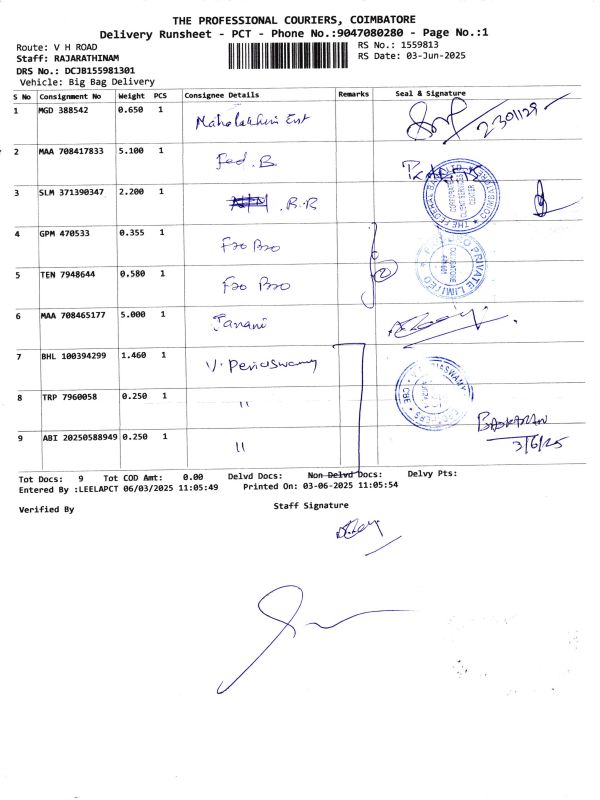 THE PROFESSIONAL COURIERS, COIMBATORE
Delivery Runsheet - PCT - Phone No.:9047080280 - Page No.:1
Route: V H ROAD
RS No.: 1559813
Staff: RAJARATHINAM
RS Date: 03-Jun-2025
DRS No.: DCJB155981301
Vehicle: Big Bag Delivery
S No Consignment No Weight PCS Consignee Details Remarks Seal & Signature
1 MGD 388542 0.650 1 Mahalakshmi Ent 2301129
2 MAA 708417833 5.100 1 Fed. B
3 SLM 371390347 2.200 1 B.R
4 GPM 470533 0.355 1
5 TEN 7948644 0.580 1
PRIVATE LIMITED
6 MAA 708465177 5.000 1 Janani
7 BHL 100394299 1.460 1 V. Periaswamy
8 TRP 7960058 0.250 1 "
BASKARAN
3/6/25
9 ABI 20250588949 0.250 1 "
Tot Docs: 9 Tot COD Amt: 0.00 Delvd Docs: Non Delvd Docs: Delvy Pts:
Entered By :LEELAPCT 06/03/2025 11:05:49 Printed On: 03-06-2025 11:05:54
Verified By
Staff Signature